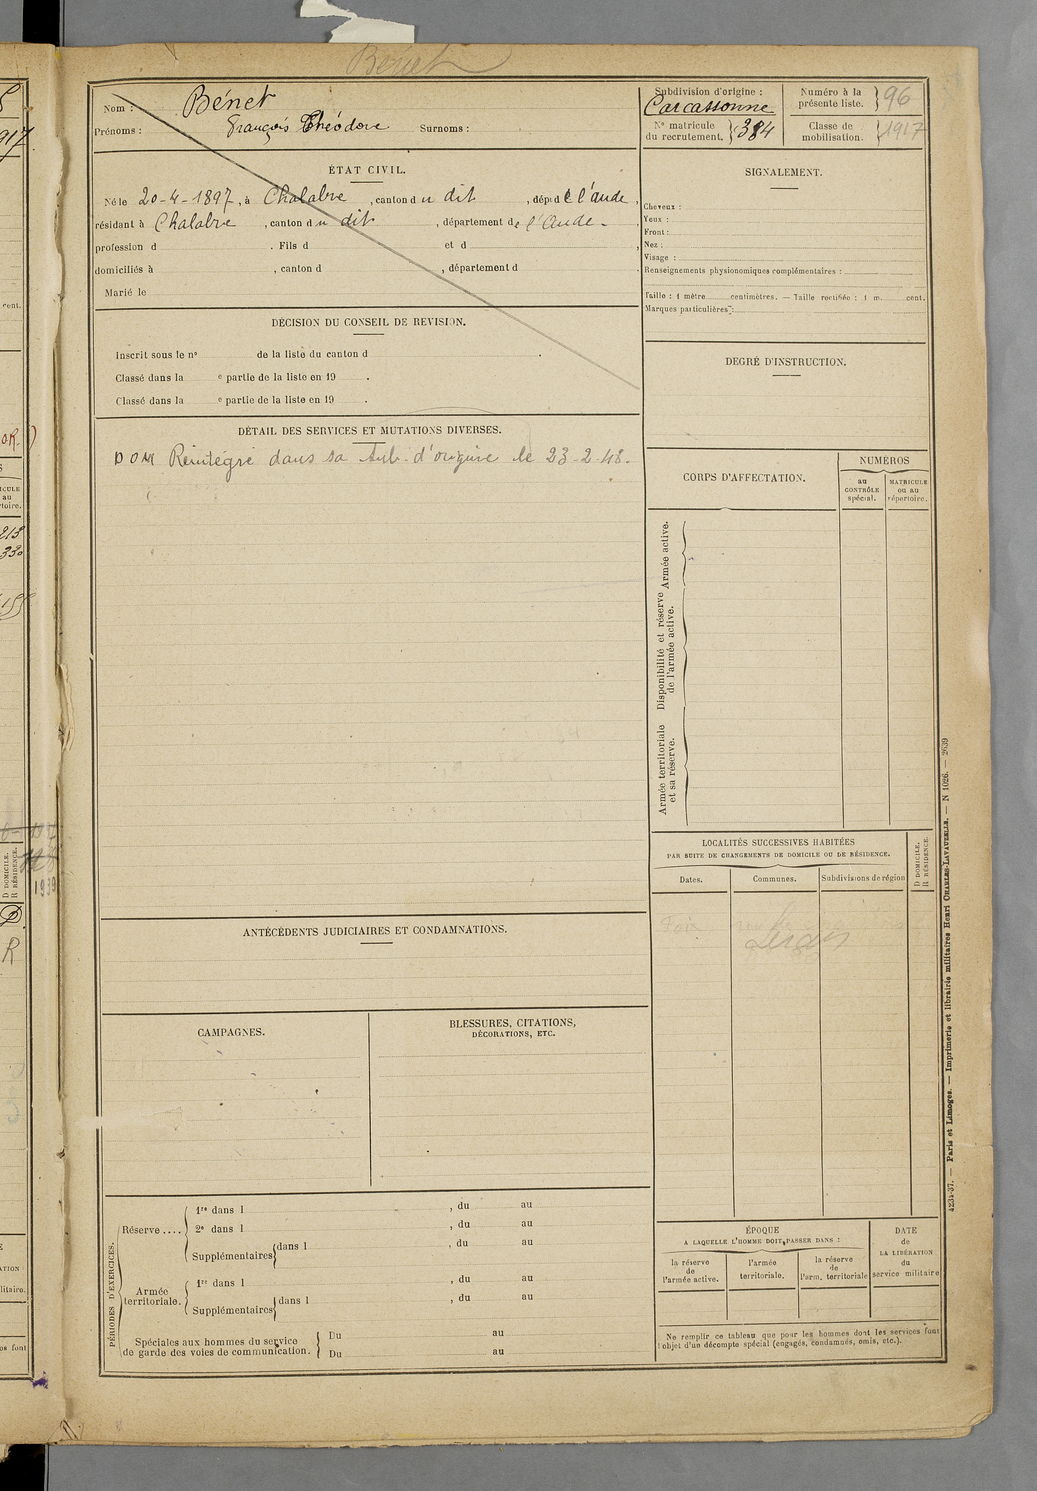 Bénet
Nom : Bénet
Prénoms : François Théodore Surnoms :
Subdivision d'origine :
Carcassonne
Nº matricule du recrutement. 384
Numéro à la présente liste. 96
Classe de mobilisation. 1917
ÉTAT CIVIL.
Né le 20-4-1897, à Chalabre, canton du dit, dépt de l'Aude,
résidant à Chalabre, canton du dit, département de l'Aude.
profession d . Fils d et d
domiciliés à , canton d , département d
Marié le
DÉCISION DU CONSEIL DE REVISION.
Inscrit sous le nº de la liste du canton d .
Classé dans la e partie de la liste en 19 .
Classé dans la e partie de la liste en 19 .
DÉTAIL DES SERVICES ET MUTATIONS DIVERSES.
DOM Réintégré dans sa sub. d'origine le 23-2-48.
ANTÉCÉDENTS JUDICIAIRES ET CONDAMNATIONS.
CAMPAGNES.
BLESSURES, CITATIONS,
DÉCORATIONS, ETC.
PÉRIODES D'EXERCICES.
Réserve ....
1re dans l , du au
2e dans l , du au
Supplémentaires dans l , du au
Armée territoriale.
1re dans l , du au
Supplémentaires dans l , du au
Spéciales aux hommes du service
de garde des voies de communication.
Du au
Du au
SIGNALEMENT.
Cheveux :
Yeux :
Front :
Nez :
Visage :
Renseignements physionomiques complémentaires :
Taille : 1 mètre centimètres. — Taille rectifiée : 1 m. cent.
Marques particulières :
DEGRÉ D'INSTRUCTION.
CORPS D'AFFECTATION.
NUMÉROS
au CONTRÔLE spécial.
MATRICULE ou au répertoire.
Armée active.
Disponibilité et réserve de l'armée active.
Armée territoriale et sa réserve.
LOCALITÉS SUCCESSIVES HABITÉES
PAR SUITE DE CHANGEMENTS DE DOMICILE OU DE RÉSIDENCE.
D DOMICILE.
R RÉSIDENCE.
Dates. Communes. Subdivisions de région
Foix
ÉPOQUE
A LAQUELLE L'HOMME DOIT PASSER DANS :
la réserve de l'armée active.
l'armée territoriale.
la réserve de l'arm. territoriale
DATE de LA LIBÉRATION du service militaire
Ne remplir ce tableau que pour les hommes dont les services font
l'objet d'un décompte spécial (engagés, condamnés, omis, etc.).
4234-37. — Paris et Limoges. — Imprimerie et librairie militaires Henri CHARLES-LAVAUZELLE. — N 1026. — 2639